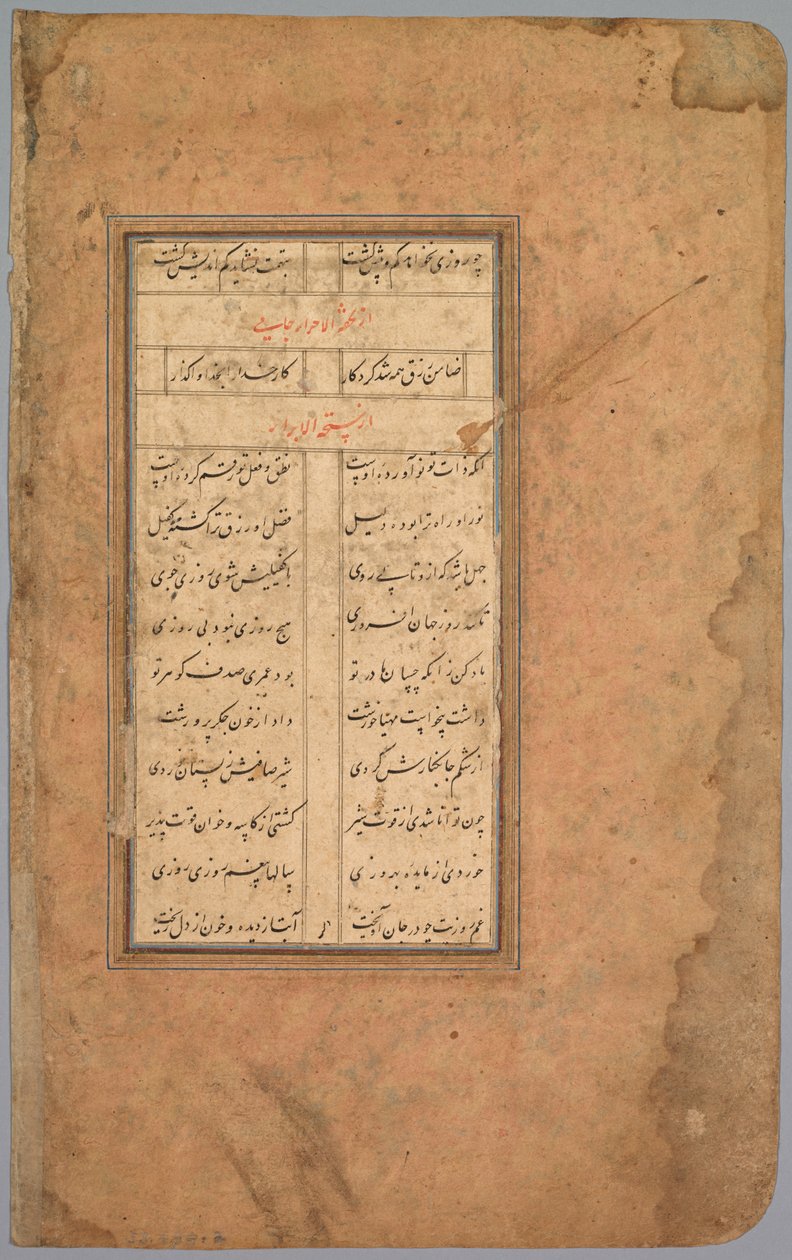 چو روزی نخواهد کم و بیش گشت بتهمت نشاید کم اندیش گشت
از تحفة الاحرار جامی
ضامن رزق همه شد کردکار کار خدا را بخدا واکذار
از سبحة الابرار
انکه ذات تو نو آورده اوست نطق و فعل تو رقم کرده اوست
نور او راه ترا بوده دلیل فضل او رزق ترا کشته کفیل
جهل باشد که ازو تابی روی با کفیلیش شوی روزی جوی
روز جهان افروزی هیچ روزی نبود بی روزی
یاد کن زانکه چسان مادر تو بود عمری صدف کوهر تو
داشت بیخواست مهیا خورشت داد از خون جکر پرورشت
از شکم جا بکنارش کردی شیر صافیش ز پستان خوردی
چون توانا شدی از قوت شیر کشتی از کاسه و خوان قوت پذیر
خوردی از مایده بهروزی سالها بی غم روزی روزی
غم روزیت چو در جان آویخت آبت از دیده و خون از دل ریخت